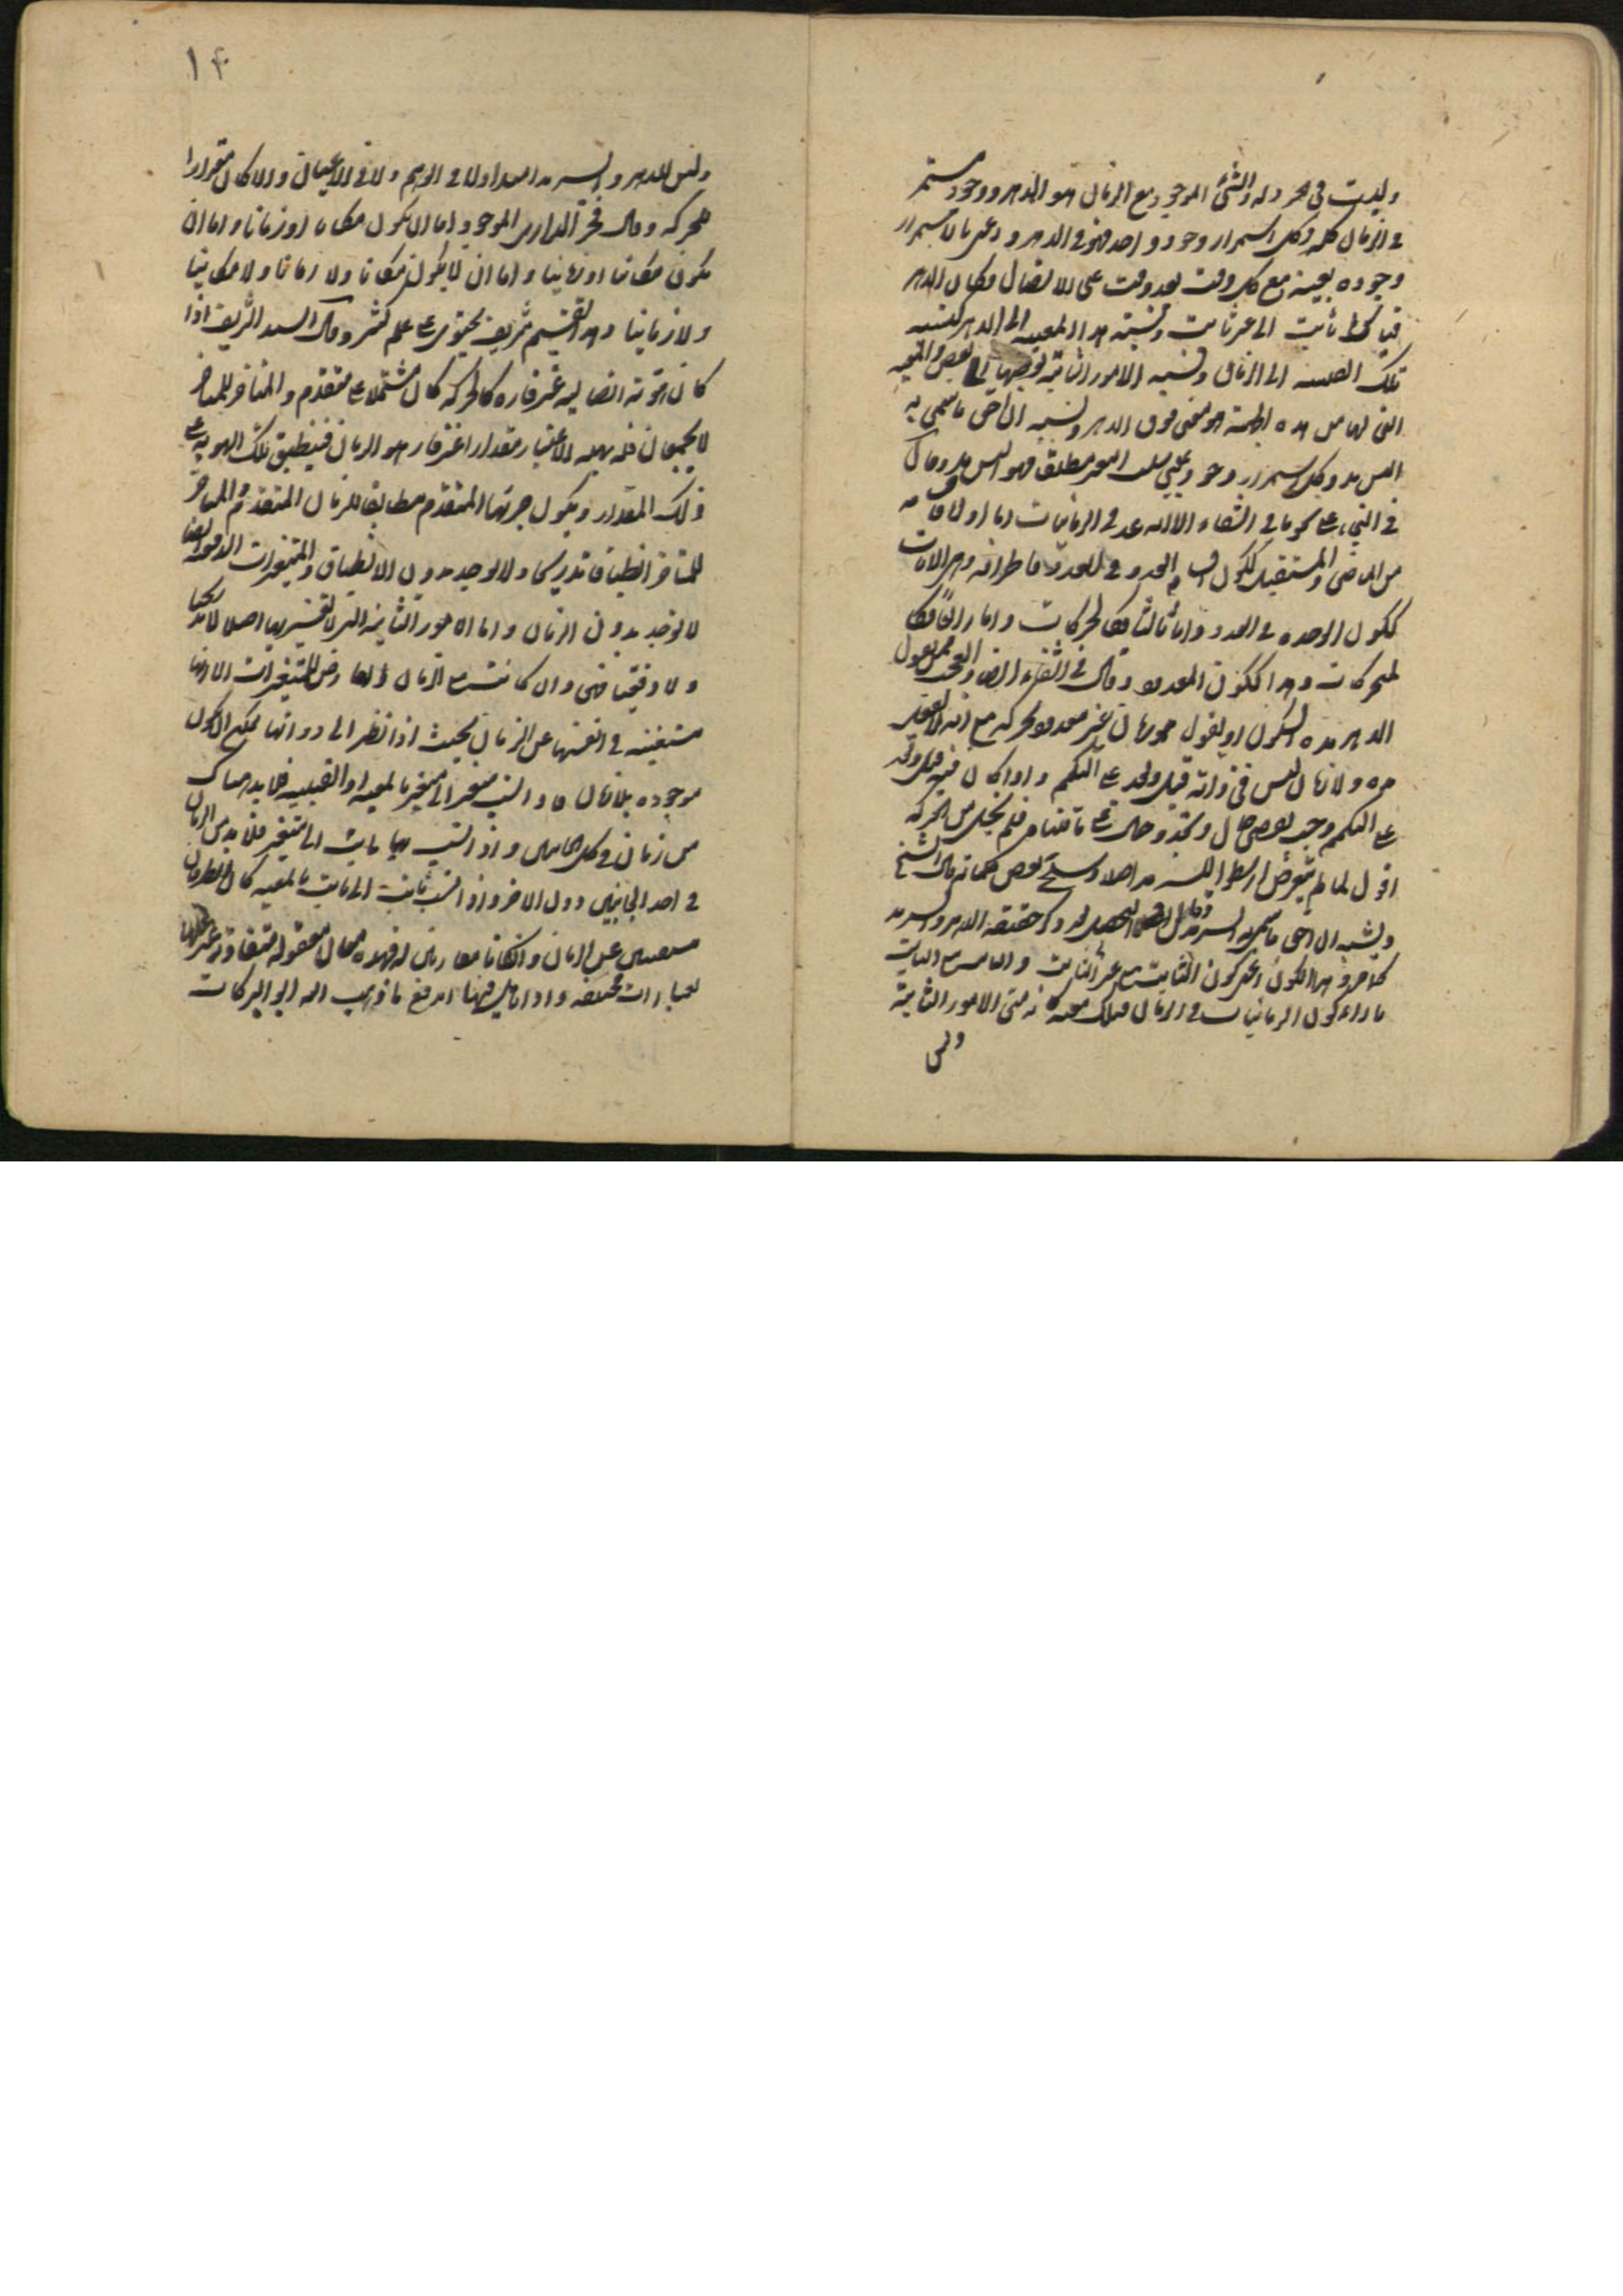 وليست في مجرد له والشئ الموجود مع الزمان هو الدهر ووجود مستمر
في الزمان كله وكل استمرار وجود واحد فهو في الدهر واعني بالاستمرار
وجوده بعينه مع كل وقت بعد وقت على الاتصال وكان الدهر
قياس ثابت الى غير ثابت ونسبة هذا المعية الى الدهر كنسبة
تلك الى الزمان ونسبة الامور الثابتة بعضها الى بعض والمعية
التي لها من هذه الجهة هو معنى فوق الدهر ونسبة ان احق ما سمي به
السرمد وكل استمرار وجود بمعنى سلب التغير مطلقا فهو السرمد وقال
في الشئ على نحو ما في الشفاء الا انه عد في الزمانيات اما اولا فاقسامه
من الماضي والمستقبل ككون العدد في العدد واما ثانيا اطرافه وهي الانات
ككون الوحدة في العدد واما ثالثا فكالحركات واما رابعا فكا
لمتحركات وهذا ككون المعدود وقال في الشفاء ايضا والعجب ممن يقول
الدهر مدة السكون او يقول زمان غير معدود بحركة مع انه لا يعقل
مدة ولا زمان ليس في ذاته قبل وبعد على التحكم واذا كان فيه قبل وبعد
على التحكم وجب بعض حال وتجدد حال على ما قلنا فلم يخل من الحركة
اقول لما لم يتعرض ارسطو للسرمد اصلا بعض كلماته قال الشيخ
ويشبه ان احق ما سمي به السرمد وقال في التحصيل وكر حقيقة الدهر والسرمد
كلاما وهذا الكون اعني كون الثابت مع غير الثابت والثابت مع الثابت
بازاء كون الزمانيات في الزمان فتلك معية كانه متى الامور الثابتة
وليس
١٤
وليس للدهر والسرمد امتداد لا في الوهم ولا في الاعيان والا كان مقدارا
للحركة وقال فخر الدين الرازي الموجود اما ان يكون مكانا او زمانا واما ان
يكون مكانيا او زمانيا واما ان لا يكون مكانا ولا زمانا ولا مكانيا
ولا زمانيا وهذا تقسيم شريف يحتوي على علم كثير وقال السيد الشريف اذا
كان هوية اتصالية غير قارة كالحركة كان مشتملا على متقدم ومتاخر
لا يجتمعان فله بهذا الاعتبار مقدار غير قار هو الزمان فينطبق تلك الهوية على
ذلك المقدار ويكون جزئها المتقدم مطابقا للزمان المتقدم والمتاخر
للمتاخر انطباقا تدريجيا ولا يوجد بدون الانطباق والمتغيرات الدفعية ايضا
لا توجد بدون الزمان واما الامور الثابتة التي لا تغير فيها اصلا لا تدريجيا
ولا دفعيا فهي وان كانت مع الزمان العارض للمتغيرات الا انها
مستغنية في انفسها عن الزمان بحيث اذا نظر الى ذواتها يمكن ان يكون
موجودة بلا زمان فاذا نسب متغير الى متغير بالمعية او القبلية فلا بد هناك
من زمان في كلا الجانبين واذا نسب بها ثابت الى متغير فلا بد من الزمان
في احد الجانبين دون الاخر واذا نسب ثابت الى ثابت بالمعية كان الطرفان
مستغنيين عن الزمان وان كانا مقارنين له فهذه معان معقولة متفاوتة عبر عنها
بعبارات مختلفة واذا تؤمل فيها اندفع ما ذهب اليه ابو البركات